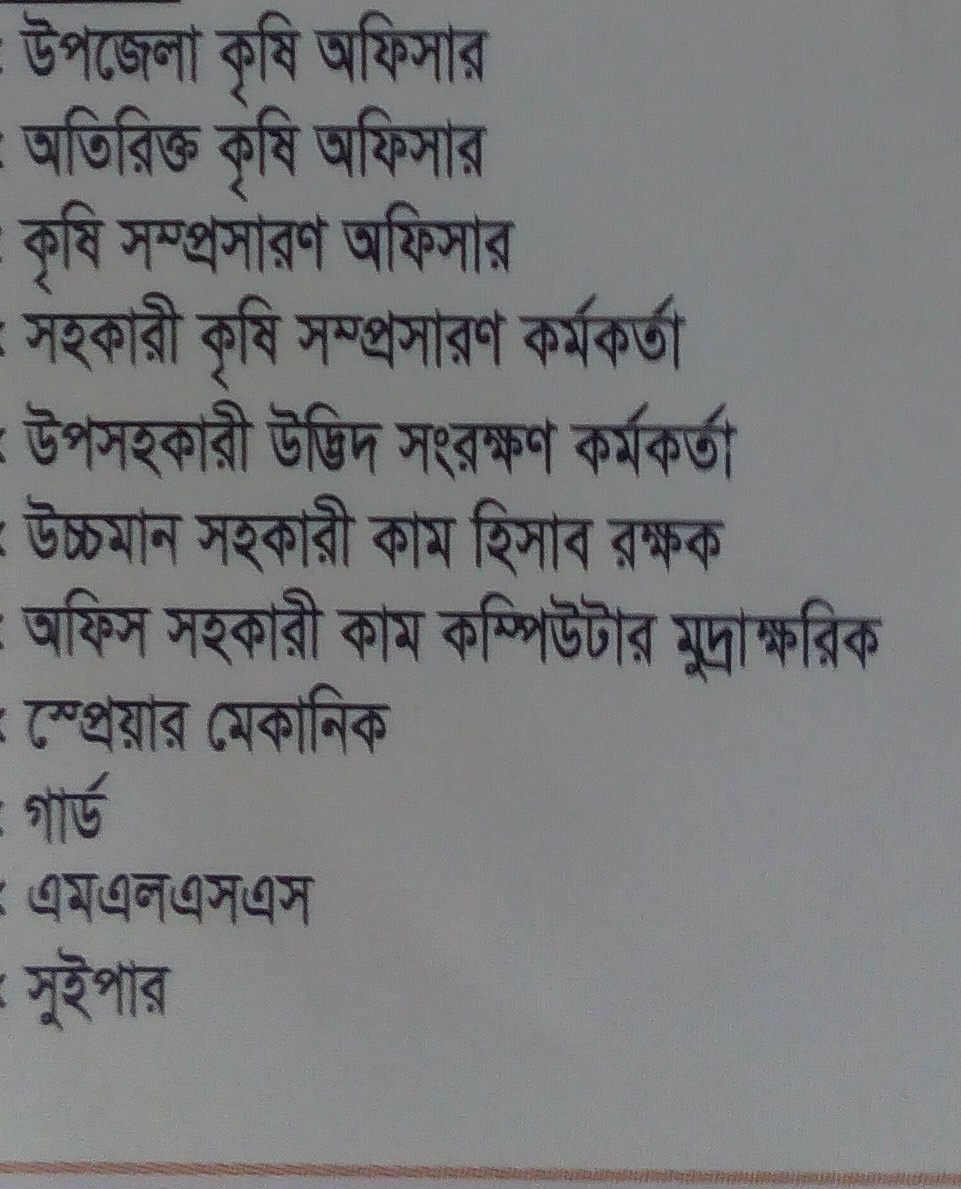 : উপজেলা কৃষি অফিসার
: অতিরিক্ত কৃষি অফিসার
: কৃষি সম্প্রসারণ অফিসার
: সহকারী কৃষি সম্প্রসারণ কর্মকর্তা
: উপসহকারী উদ্ভিদ সংরক্ষণ কর্মকর্তা
: উচ্চমান সহকারী কাম হিসাব রক্ষক
: অফিস সহকারী কাম কম্পিউটার মুদ্রাক্ষরিক
: স্প্রেয়ার মেকানিক
: গার্ড
: এমএলএসএস
: সুইপার